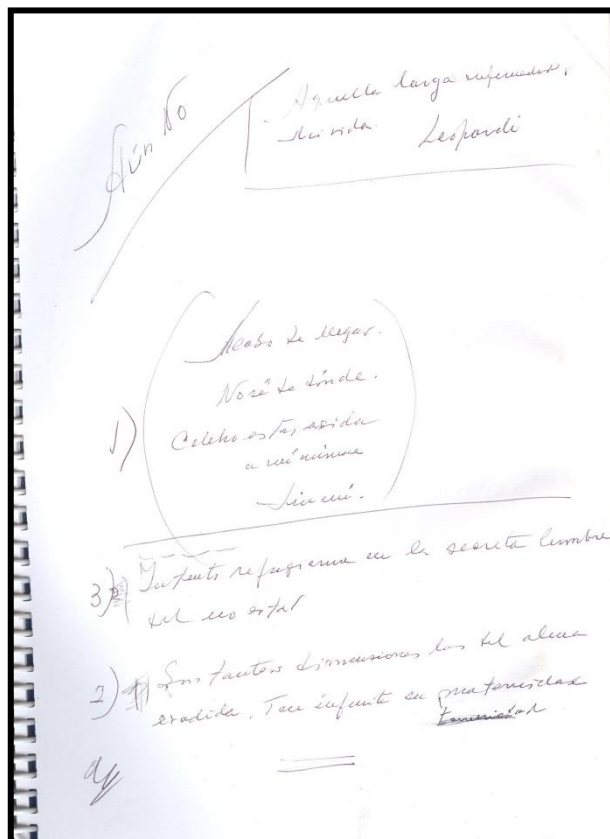 Aún no
Aquella larga enfermedad,
mi vida. Leopardi
1)
Acabo de llegar.
No sé de dónde.
Celebro estar, asida
a mí misma
sin mí.
3) Intento refugiarme en la secreta lumbre
del no estar
2) Son tantas dimensiones las del alma
evadida. Tan infinita su